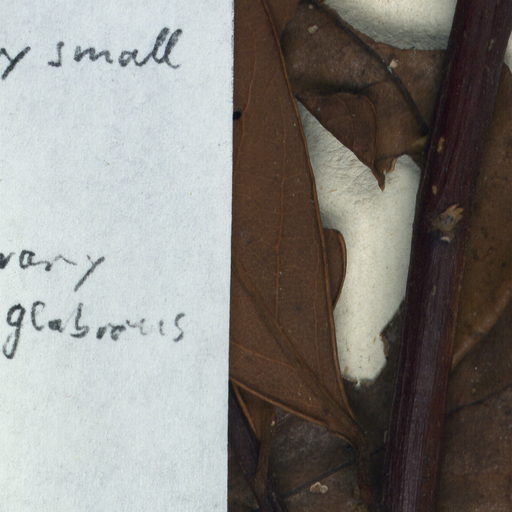 y small
vary
glabrous